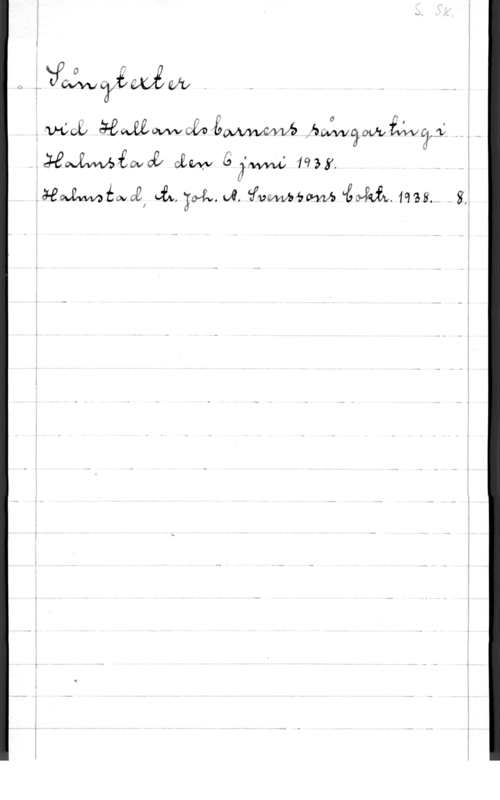 S. Sk.
Sångtexter
vid Hallandsbarnens sångarting i
Halmstad den 6 juni 1938.
Halmstad, tr. Joh. A. Svenssons boktr. 1938. 8.